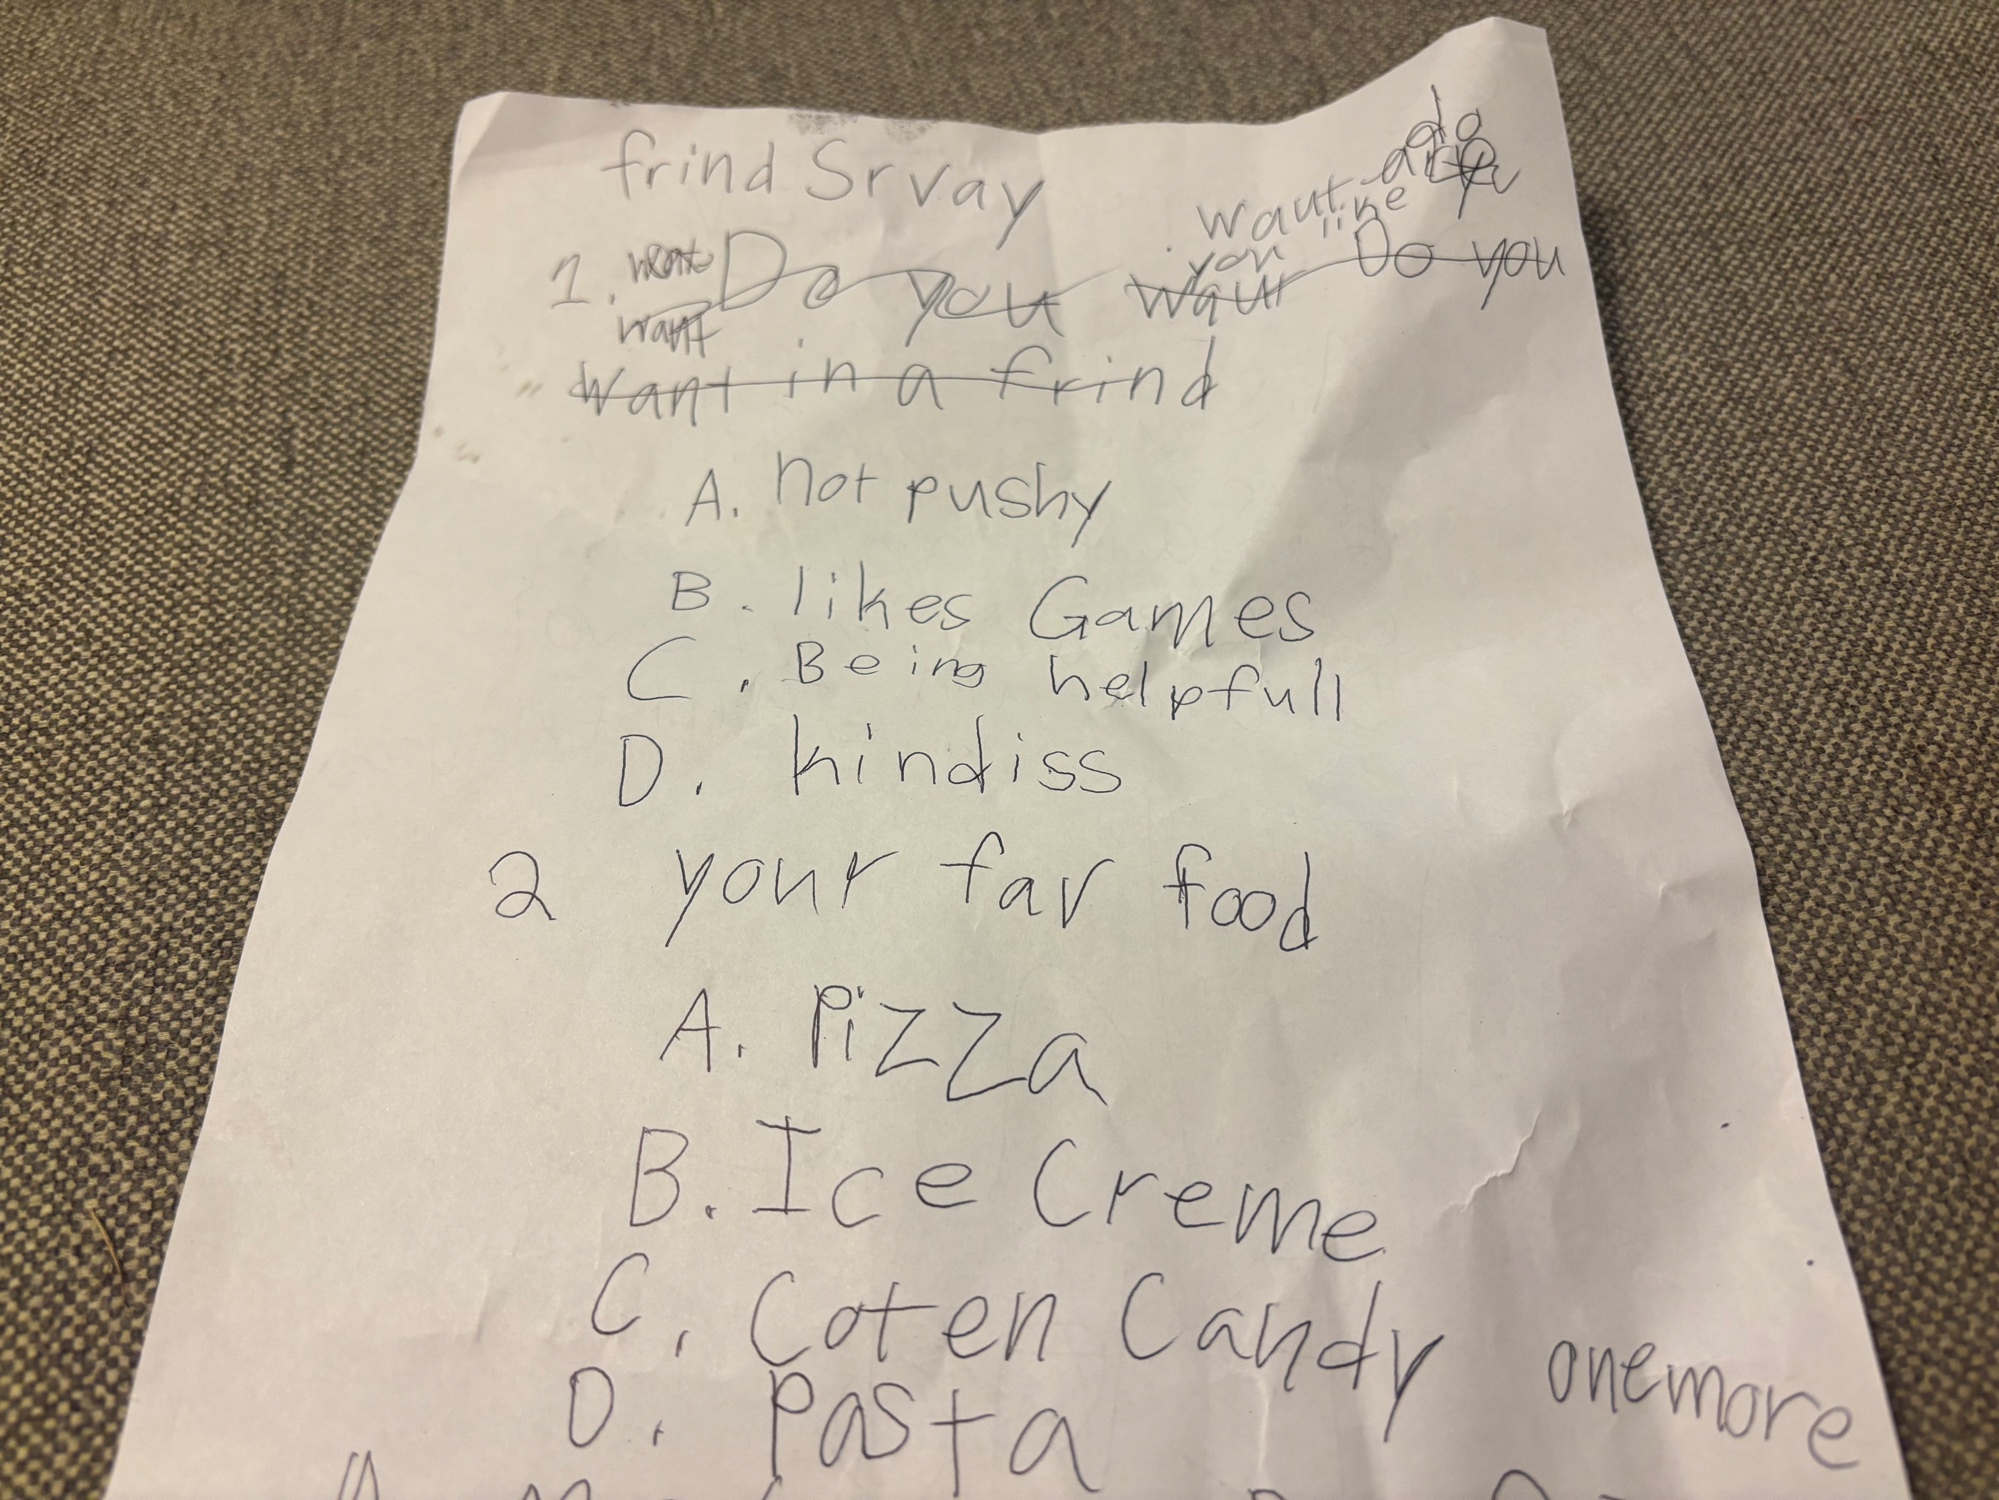 frind Srvay
do
want like
you
1. want Do you waur Do you
want
want in a frind
A. not pushy
B. likes Games
C. Being helpfull
D. kindiss
2 your fav food
A. Pizza
B. Ice Creme
C. Coten Candy onemore
D. Pasta